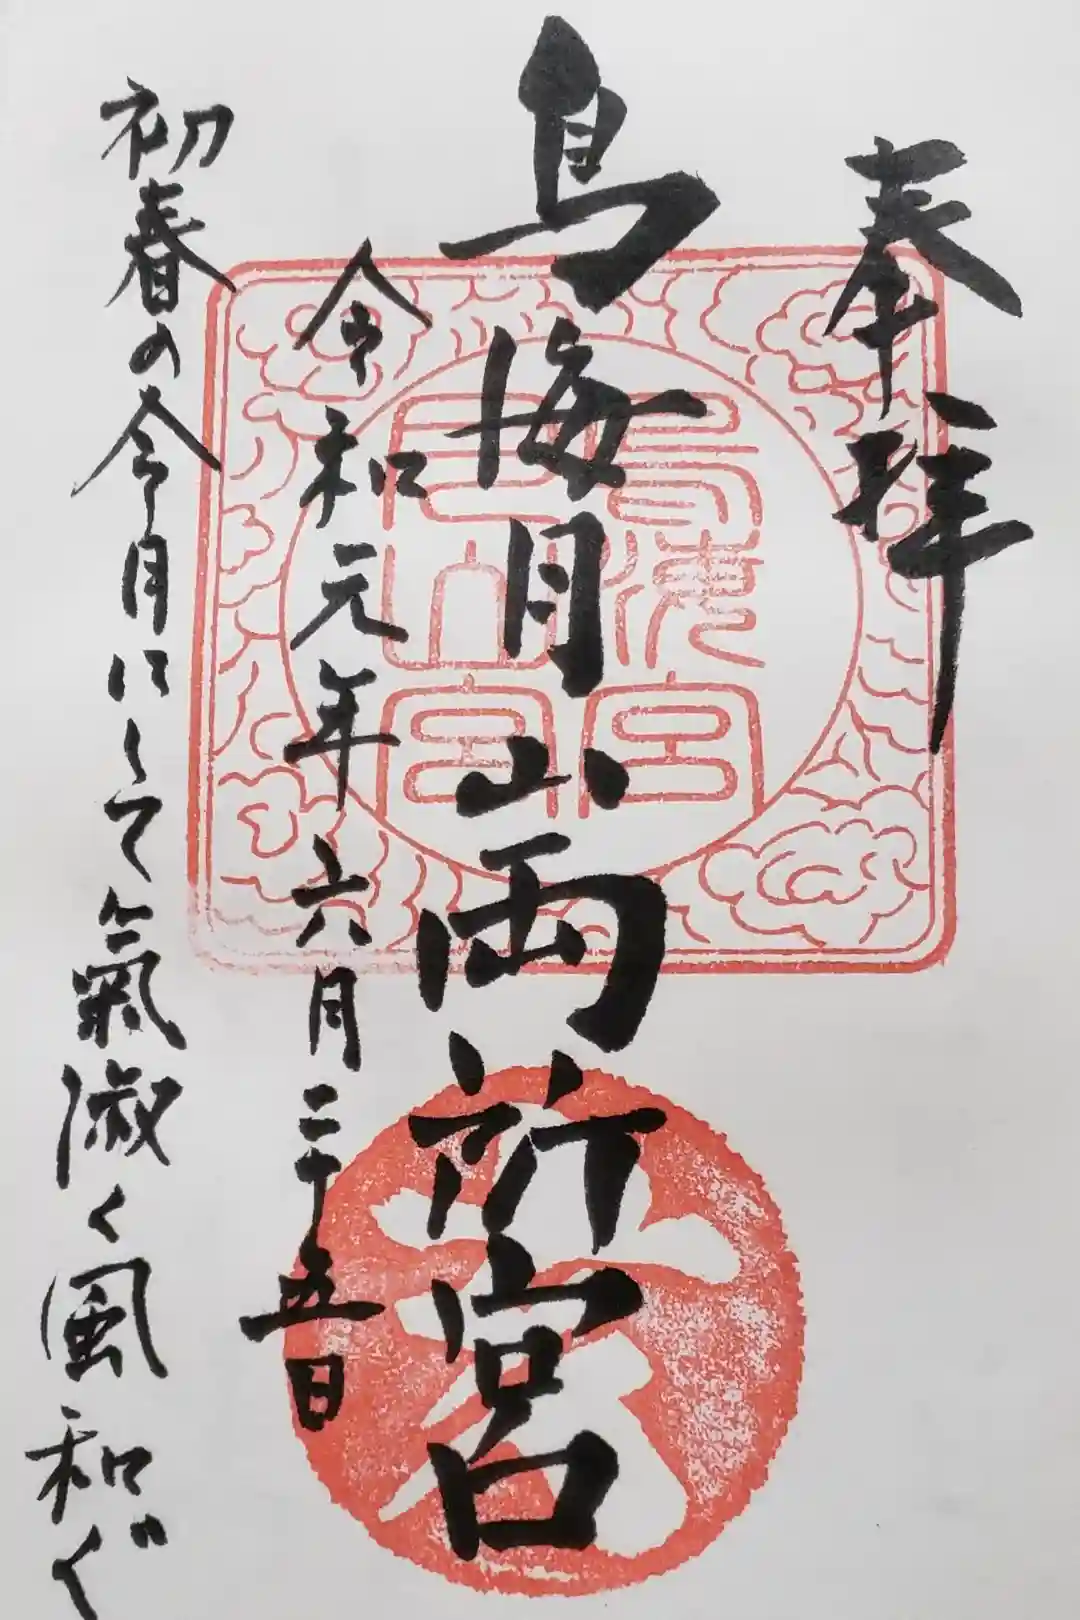 奉拝
鳥海月山両所宮
令和元年六月二十五日
初春の令月にして氣淑く風和ぐ